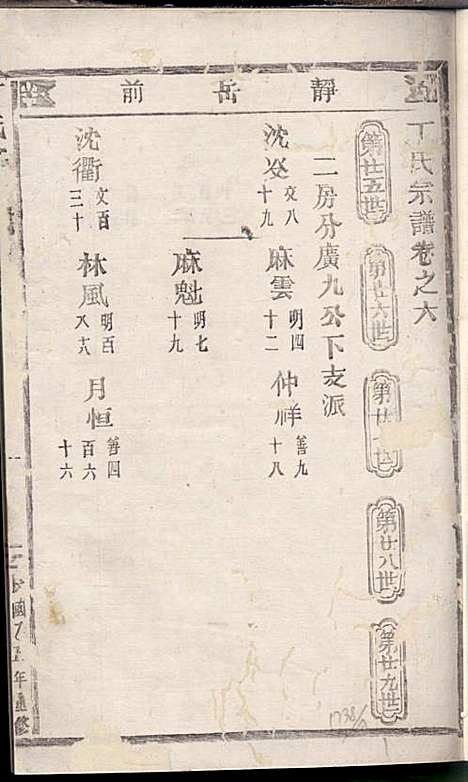 靜岳前
丁氏宗譜卷之六
第廿五世
第廿六世
第廿七世
第廿八世
第廿九世
二房分廣九公下支派
沈 文八十九
麻雲 明四十二
仲祥 善九十八
麻魁 明七十九
沈衢 文百三十
林風 明百
月恒 善四百六十六
國 年重修
1738/